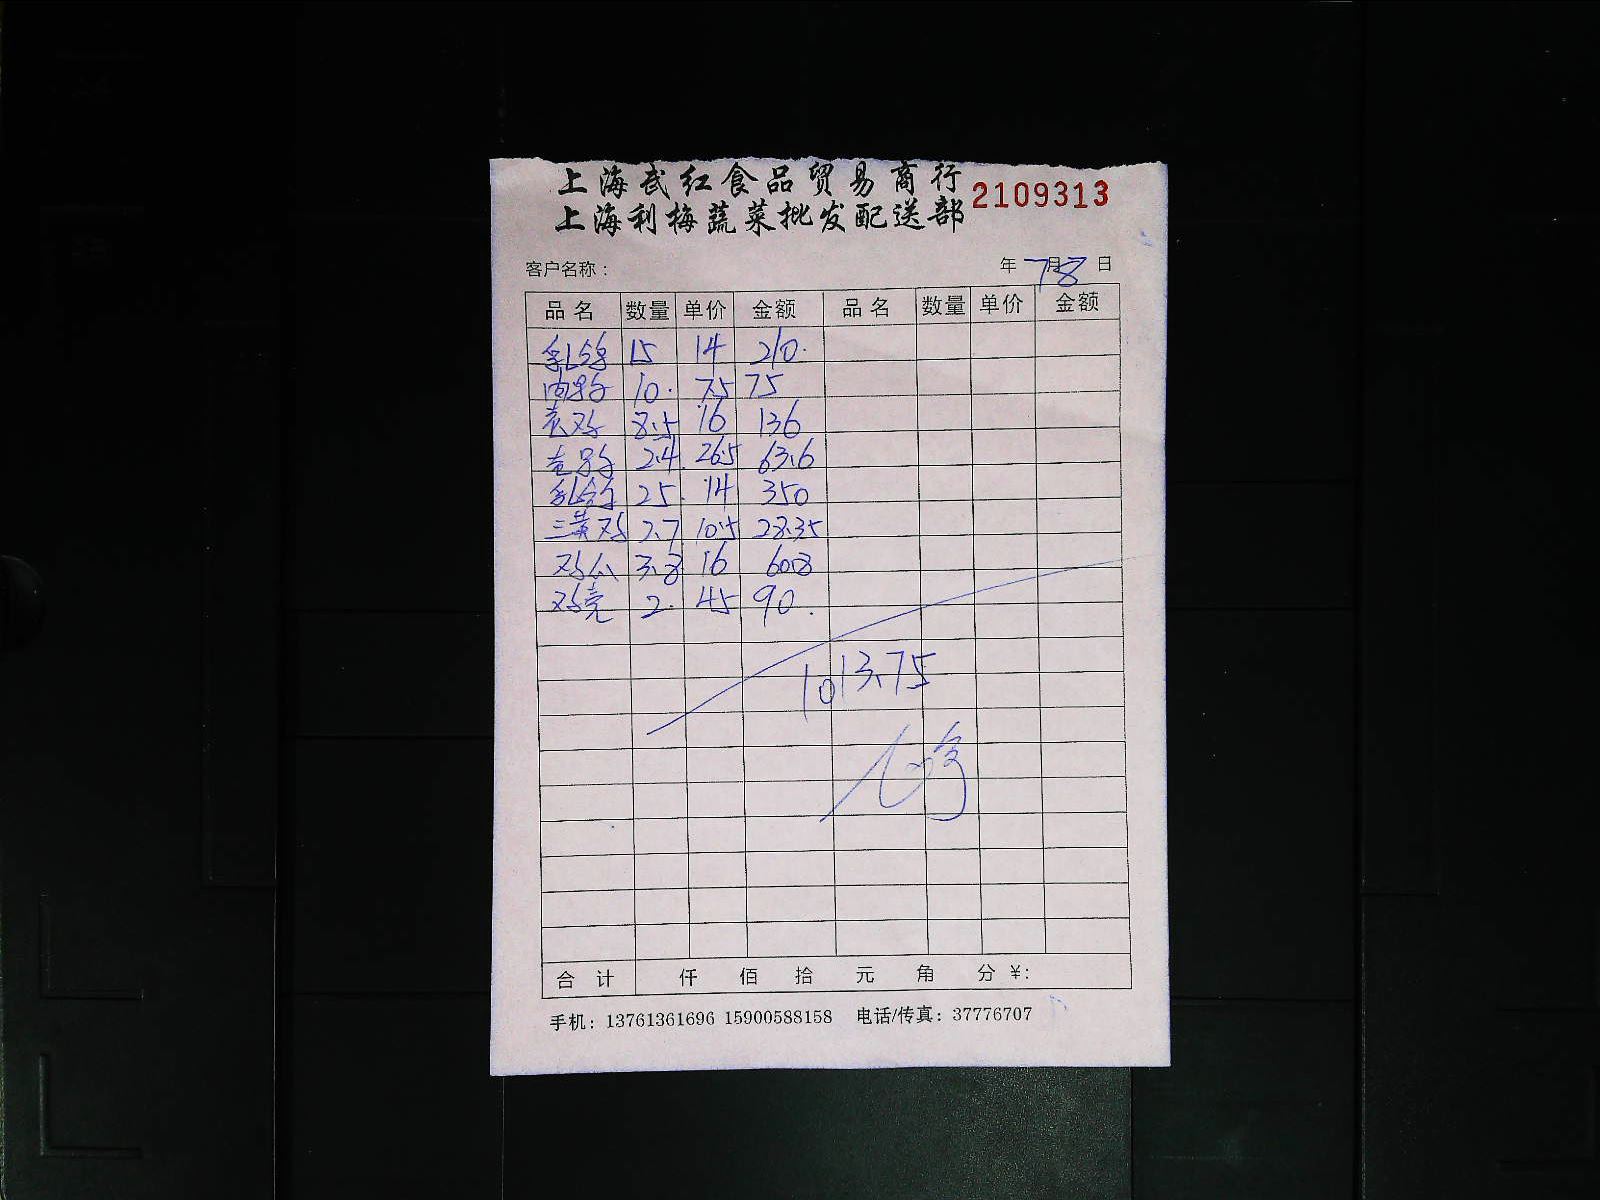 上海武红食品贸易商行
2109313
上海利梅蔬菜批发配送部
客户名称: 年 7月8日
品名 数量 单价 金额 品名 数量 单价 金额
乳鸽 15 14 210.
肉鸽 10. 7.5 75
鸡 8.5 16 136
2.4 26.5 63.6
乳鸽 25. 14 350
三黄鸡 2.7 10.5 28.35
鸡爪 3.8 16 60.8
鸡壳 2. 45 90.
1013.75
合计 仟 佰 拾 元 角 分 ¥:
手机: 13761361696 15900588158 电话/传真: 37776707